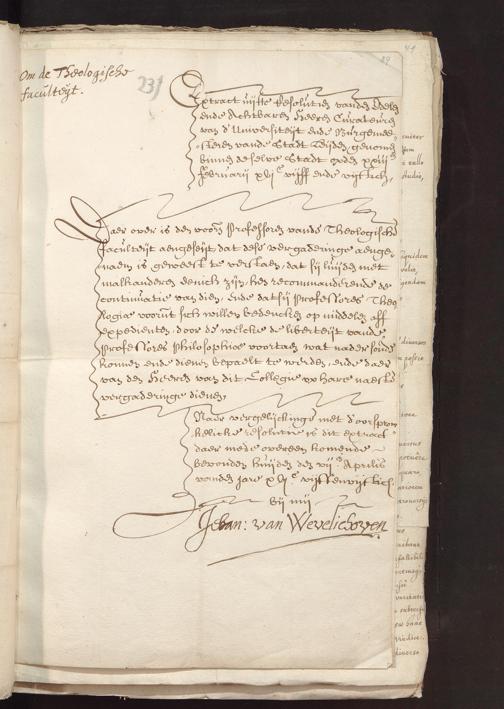 Om de Theologische
faculteyt.
231
39
Extract uijtte Resolutien vande Edele
ende Achtbaere Heeren Curateuren
van d'Universiteijt ende Burgemee-
steren vande Stadt Leijden genomen
binnen deselve Stadt opden xxiij
februarij xvjc vijff ende vijftich,
Daer over is den voors Professoren vande Theologische
faculteijt aengeseijt, dat dese vergaderinge aenge-
naem is geweest te verstaen, dat sij luijden met
malkanderen eenich zijn, hen recommanderende de
continuatie van dien, Ende dat sij Professores Theo-
logiæ voorts sich willen bedencken op middelen off
expedienten, door de welcke de liberteijt vande
Professores Philosophiæ voortaen wat nader soude
konnen ende dienen bepaelt te werden, ende daer
van den Heeren van dit Collegie t'hare naeste
vergaderinge dienen,
Naer vergelijckinge met d'oorspron
kelicke resolutie is dit extract
daer mede overeen komende
bevonden huijden den vijc Aprilis
vanden jare xvjc vijffenvijftich
bij mij
Johan: van Wevelichoven